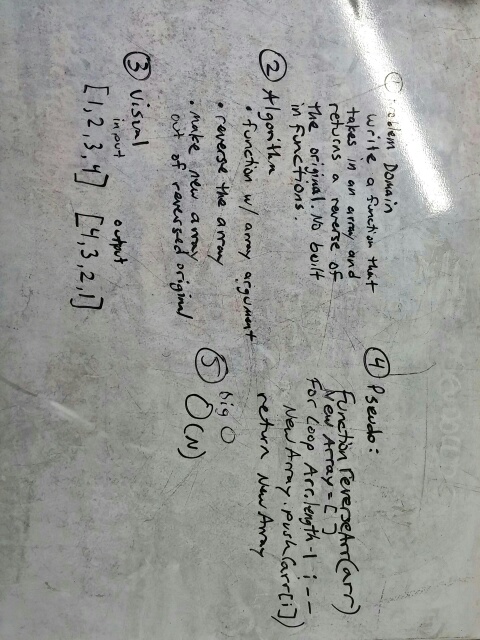 ① Problem Domain
write a function that
takes in an array and
returns a reverse of
the original. No built
in functions.
② Algorithm
• function w/ array argument
• reverse the array
• make new array
out of reversed original
③ Visual
input output
[1,2,3,4] [4,3,2,1]
④ Pseudo:
Function ReverseArr(arr)
New Array = [ ]
For Loop Arr.length -1 i --
New Array.push(arr[i])
return New Array
⑤ big O
O(N)